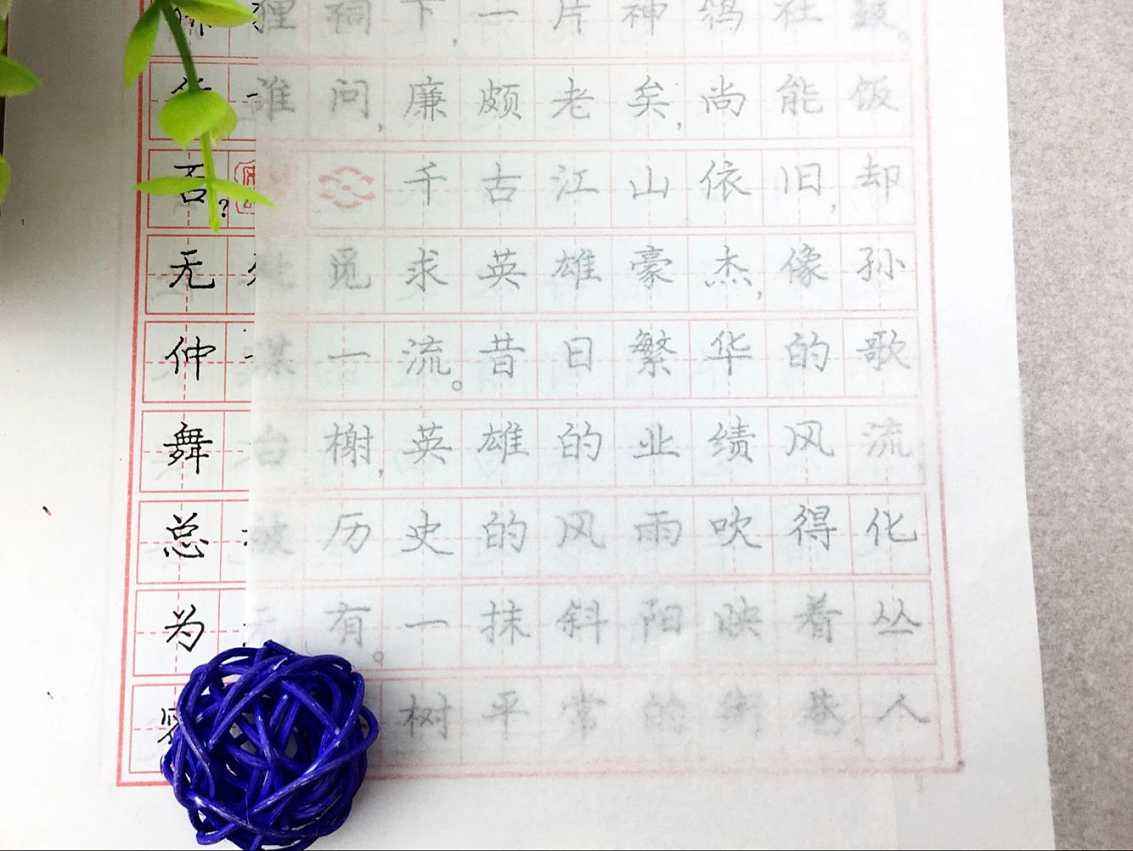 狸祠下,一片神鸦社鼓。
谁问,廉颇老矣,尚能饭
否?千古江山依旧,却
无处觅求英雄豪杰,像孙
仲谋一流。昔日繁华的歌
舞台榭,英雄的业绩风流
总被历史的风雨吹得化
为有。一抹斜阳映着丛
树平常的街巷,人